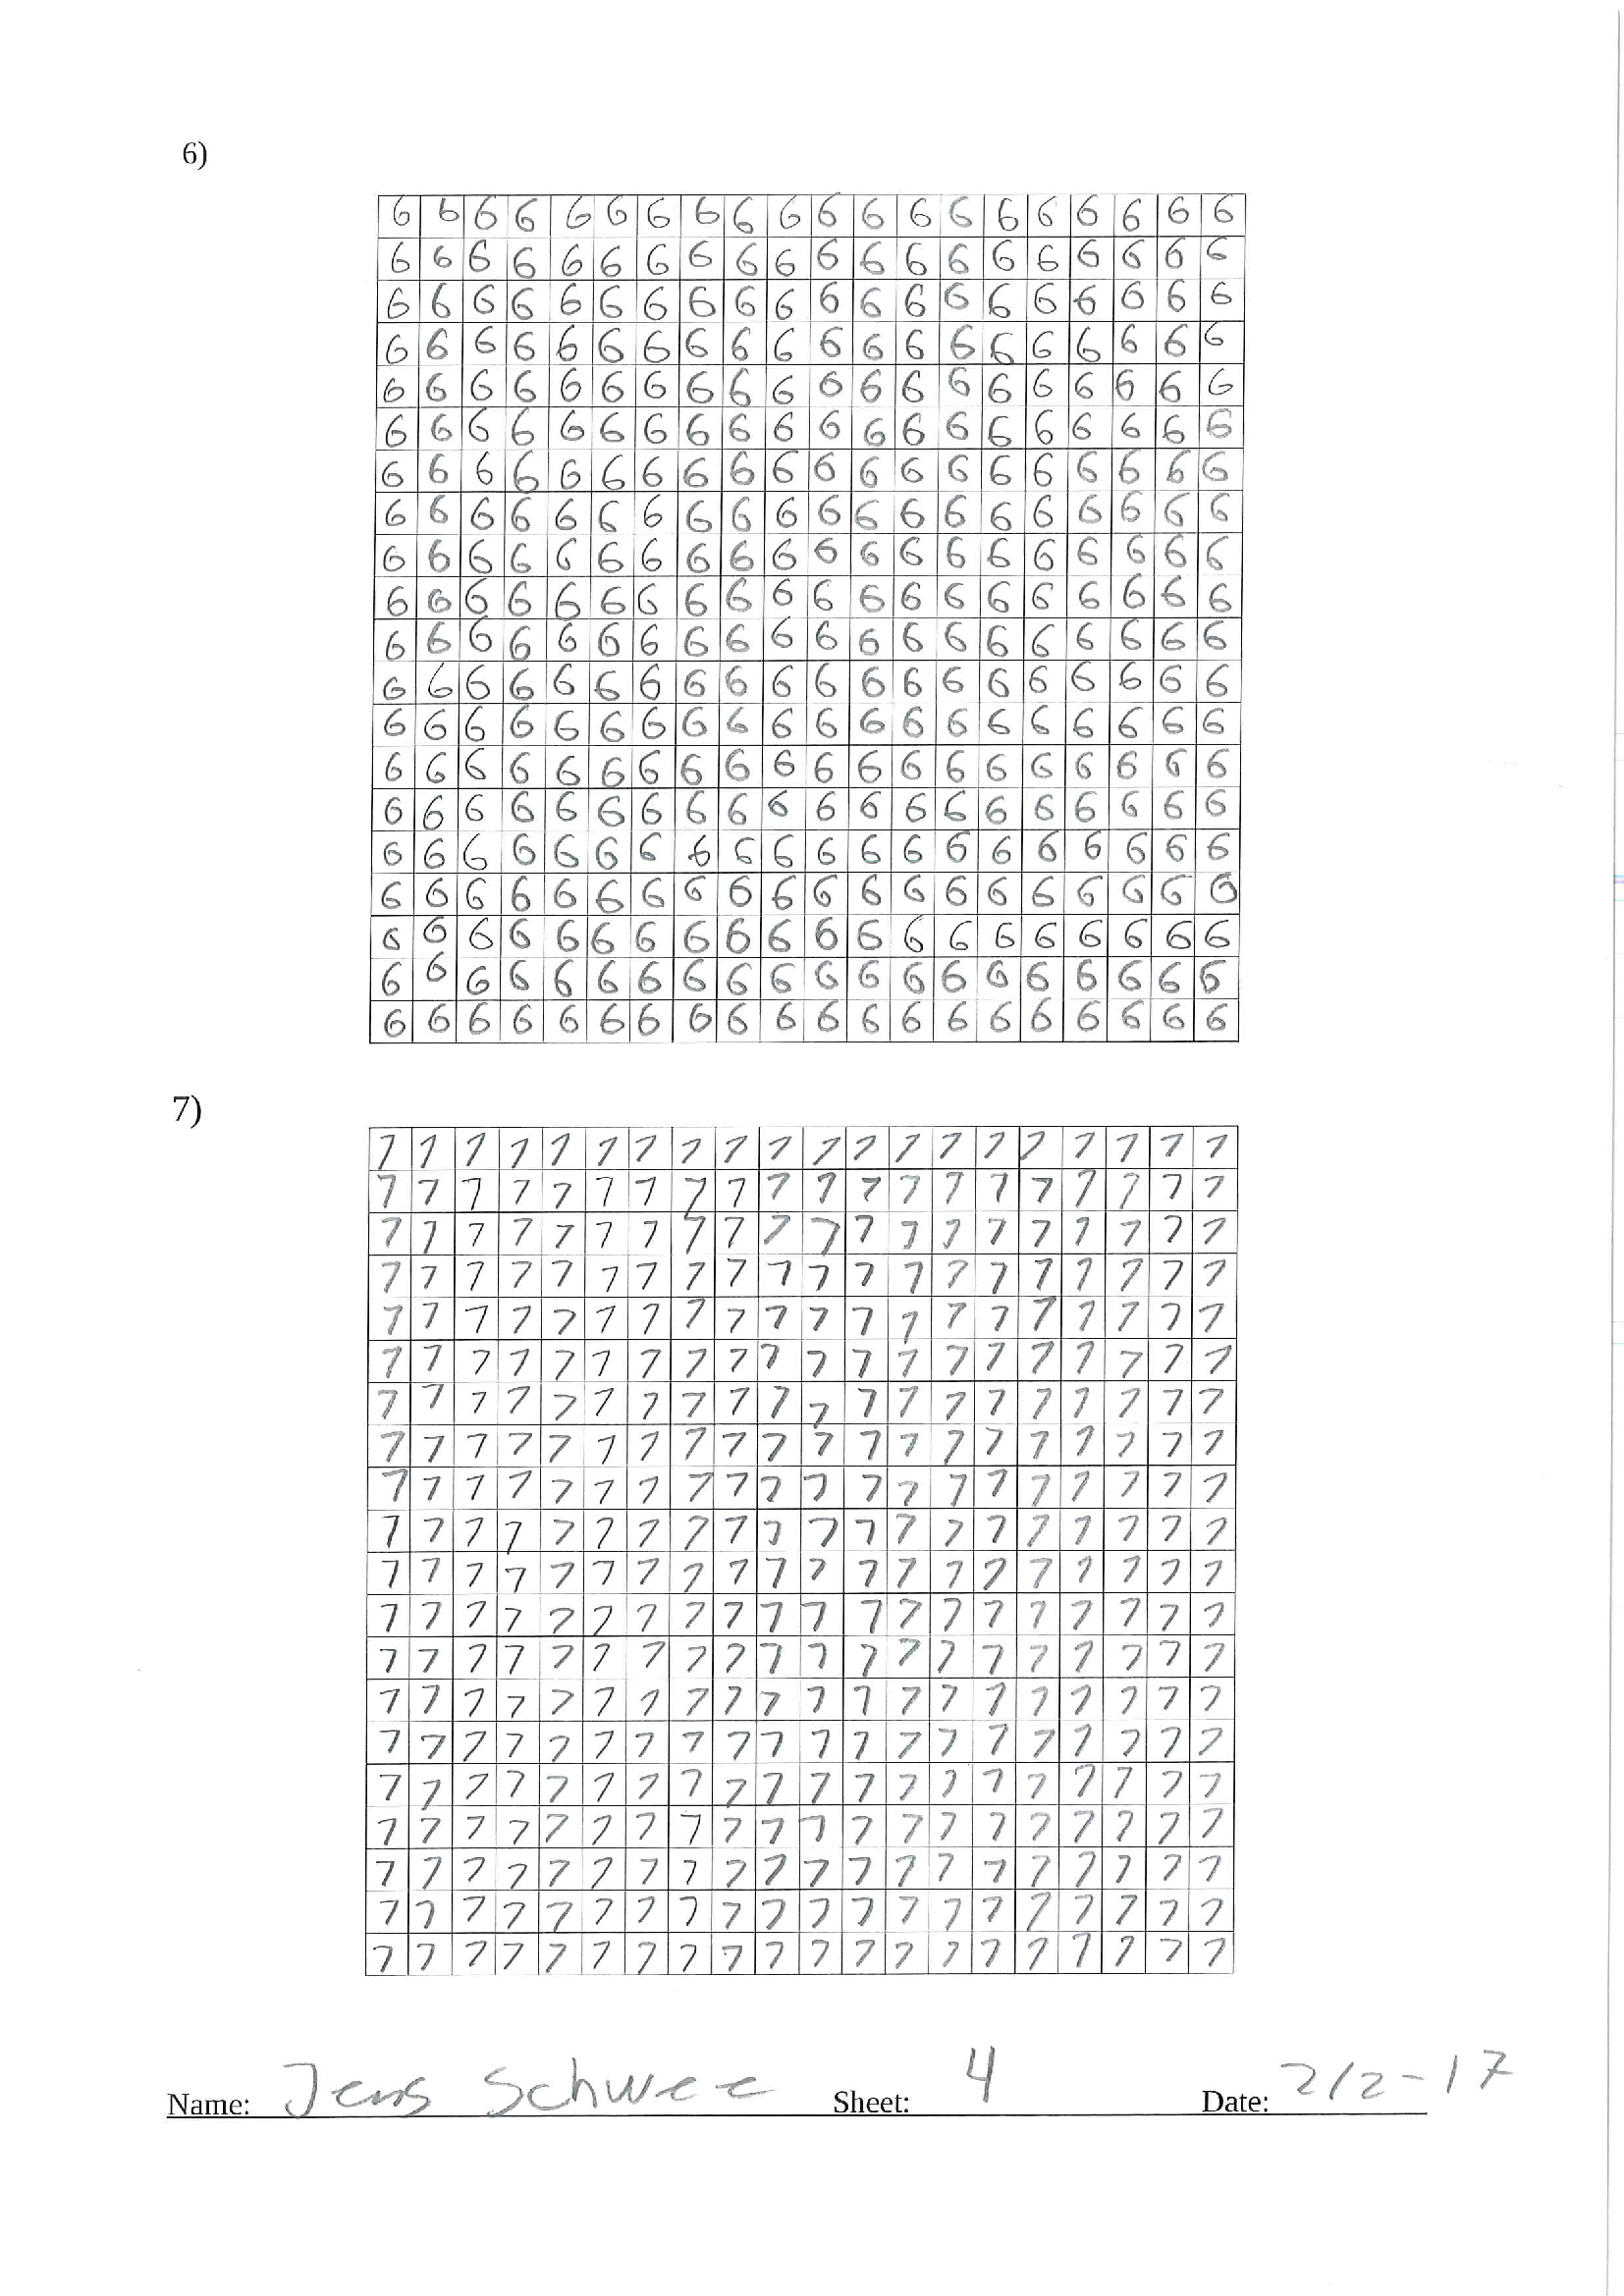 6)
6 6 6 6 6 6 6 6 6 6 6 6 6 6 6 6 6 6 6 6
6 6 6 6 6 6 6 6 6 6 6 6 6 6 6 6 6 6 6 6
6 6 6 6 6 6 6 6 6 6 6 6 6 6 6 6 6 6 6 6
6 6 6 6 6 6 6 6 6 6 6 6 6 6 6 6 6 6 6 6
6 6 6 6 6 6 6 6 6 6 6 6 6 6 6 6 6 6 6 6
6 6 6 6 6 6 6 6 6 6 6 6 6 6 6 6 6 6 6 6
6 6 6 6 6 6 6 6 6 6 6 6 6 6 6 6 6 6 6 6
6 6 6 6 6 6 6 6 6 6 6 6 6 6 6 6 6 6 6 6
6 6 6 6 6 6 6 6 6 6 6 6 6 6 6 6 6 6 6 6
6 6 6 6 6 6 6 6 6 6 6 6 6 6 6 6 6 6 6 6
6 6 6 6 6 6 6 6 6 6 6 6 6 6 6 6 6 6 6 6
6 6 6 6 6 6 6 6 6 6 6 6 6 6 6 6 6 6 6 6
6 6 6 6 6 6 6 6 6 6 6 6 6 6 6 6 6 6 6 6
6 6 6 6 6 6 6 6 6 6 6 6 6 6 6 6 6 6 6 6
6 6 6 6 6 6 6 6 6 6 6 6 6 6 6 6 6 6 6 6
6 6 6 6 6 6 6 6 6 6 6 6 6 6 6 6 6 6 6 6
6 6 6 6 6 6 6 6 6 6 6 6 6 6 6 6 6 6 6 6
6 6 6 6 6 6 6 6 6 6 6 6 6 6 6 6 6 6 6 6
6 6 6 6 6 6 6 6 6 6 6 6 6 6 6 6 6 6 6 6
6 6 6 6 6 6 6 6 6 6 6 6 6 6 6 6 6 6 6 6
7)
7 7 7 7 7 7 7 7 7 7 7 7 7 7 7 7 7 7 7 7
7 7 7 7 7 7 7 7 7 7 7 7 7 7 7 7 7 7 7 7
7 7 7 7 7 7 7 7 7 7 7 7 7 7 7 7 7 7 7 7
7 7 7 7 7 7 7 7 7 7 7 7 7 7 7 7 7 7 7 7
7 7 7 7 7 7 7 7 7 7 7 7 7 7 7 7 7 7 7 7
7 7 7 7 7 7 7 7 7 7 7 7 7 7 7 7 7 7 7 7
7 7 7 7 7 7 7 7 7 7 7 7 7 7 7 7 7 7 7 7
7 7 7 7 7 7 7 7 7 7 7 7 7 7 7 7 7 7 7 7
7 7 7 7 7 7 7 7 7 7 7 7 7 7 7 7 7 7 7 7
7 7 7 7 7 7 7 7 7 7 7 7 7 7 7 7 7 7 7 7
7 7 7 7 7 7 7 7 7 7 7 7 7 7 7 7 7 7 7 7
7 7 7 7 7 7 7 7 7 7 7 7 7 7 7 7 7 7 7 7
7 7 7 7 7 7 7 7 7 7 7 7 7 7 7 7 7 7 7 7
7 7 7 7 7 7 7 7 7 7 7 7 7 7 7 7 7 7 7 7
7 7 7 7 7 7 7 7 7 7 7 7 7 7 7 7 7 7 7 7
7 7 7 7 7 7 7 7 7 7 7 7 7 7 7 7 7 7 7 7
7 7 7 7 7 7 7 7 7 7 7 7 7 7 7 7 7 7 7 7
7 7 7 7 7 7 7 7 7 7 7 7 7 7 7 7 7 7 7 7
7 7 7 7 7 7 7 7 7 7 7 7 7 7 7 7 7 7 7 7
7 7 7 7 7 7 7 7 7 7 7 7 7 7 7 7 7 7 7 7
Name: Jens Schwee Sheet: 4 Date: 2/2-17